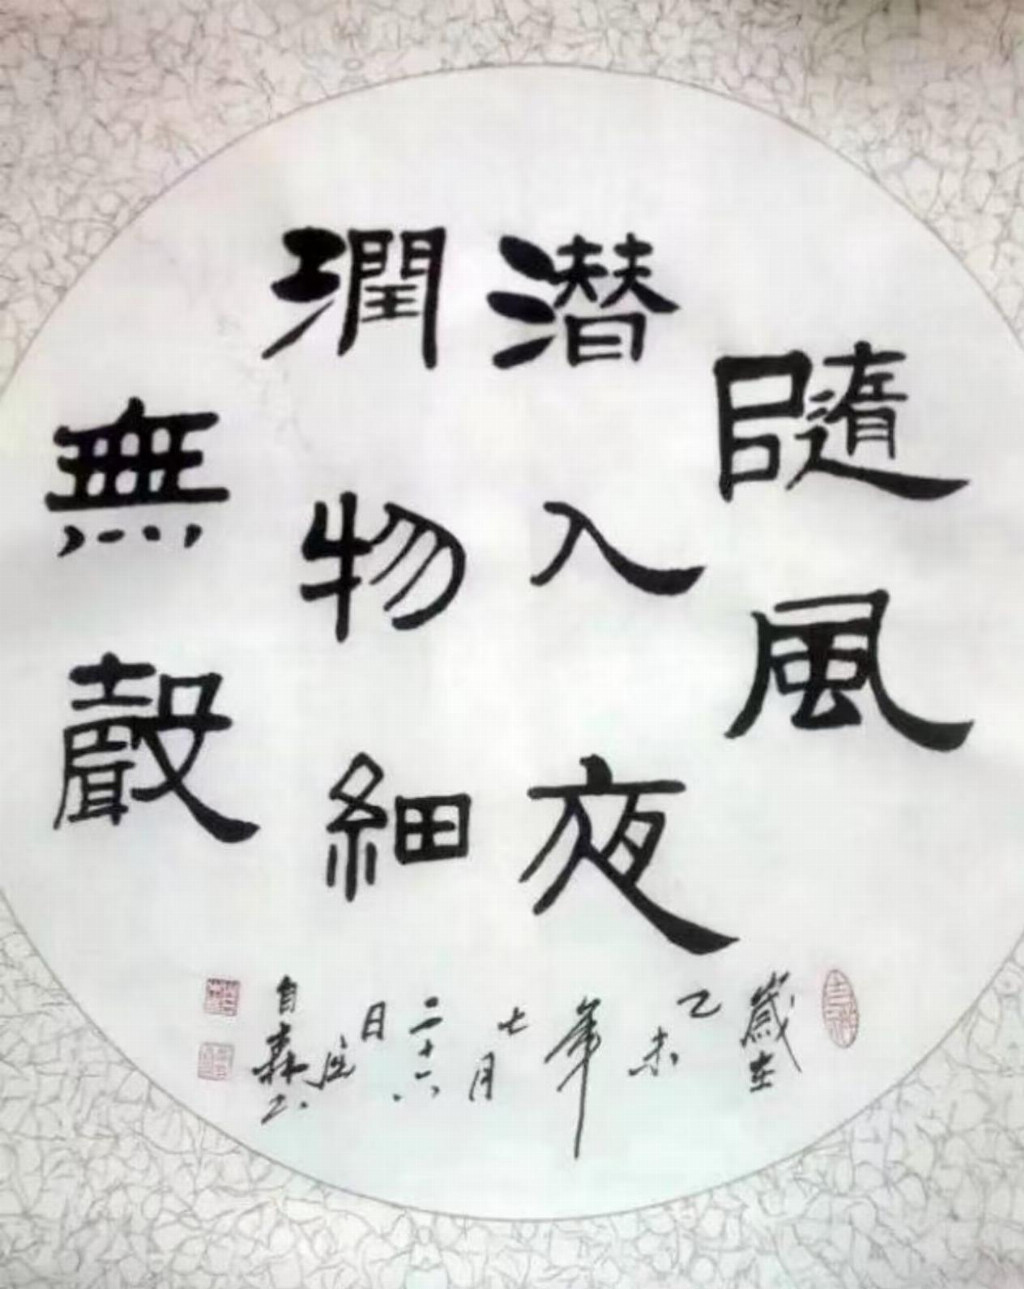 隨風
潜入夜
潤物細
無聲
歲在
乙未
年
七月
二十六
日